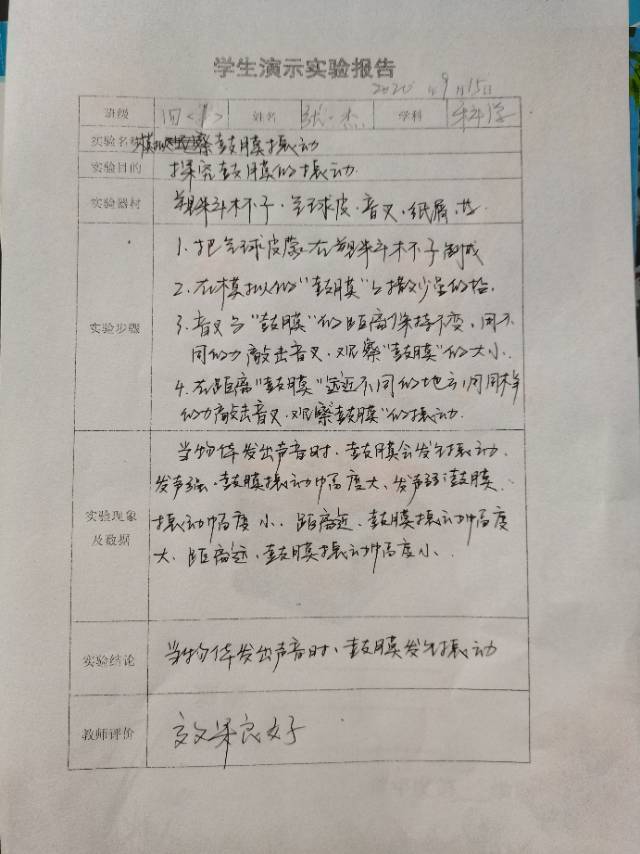 学生演示实验报告
2020年9月15日
班级 四<1> 姓名 张杰 学科 科学
实验名称 模拟观察鼓膜振动
实验目的 探究鼓膜的振动
实验器材 塑料杯子、气球皮、音叉、纸屑、盐
1. 把气球皮蒙在塑料杯子制成
2. 在模拟的"鼓膜"上撒少量的
实验步骤
3. 音叉与"鼓膜"的距离保持不变,用不
同的力敲击音叉,观察"鼓膜"的大小.
4. 在距离"鼓膜"远近不同的地方用同样
的力敲击音叉,观察鼓膜"的振动.
当物体发出声音时、鼓膜会发生振动.
发声强、鼓膜振动幅度大、发声弱鼓膜
实验现象
及数据
振动幅度小、距离近、鼓膜振动幅度
大、距离远、鼓膜振动幅度小.
实验结论 当物体发出声音时、鼓膜发生振动
教师评价 效果良好